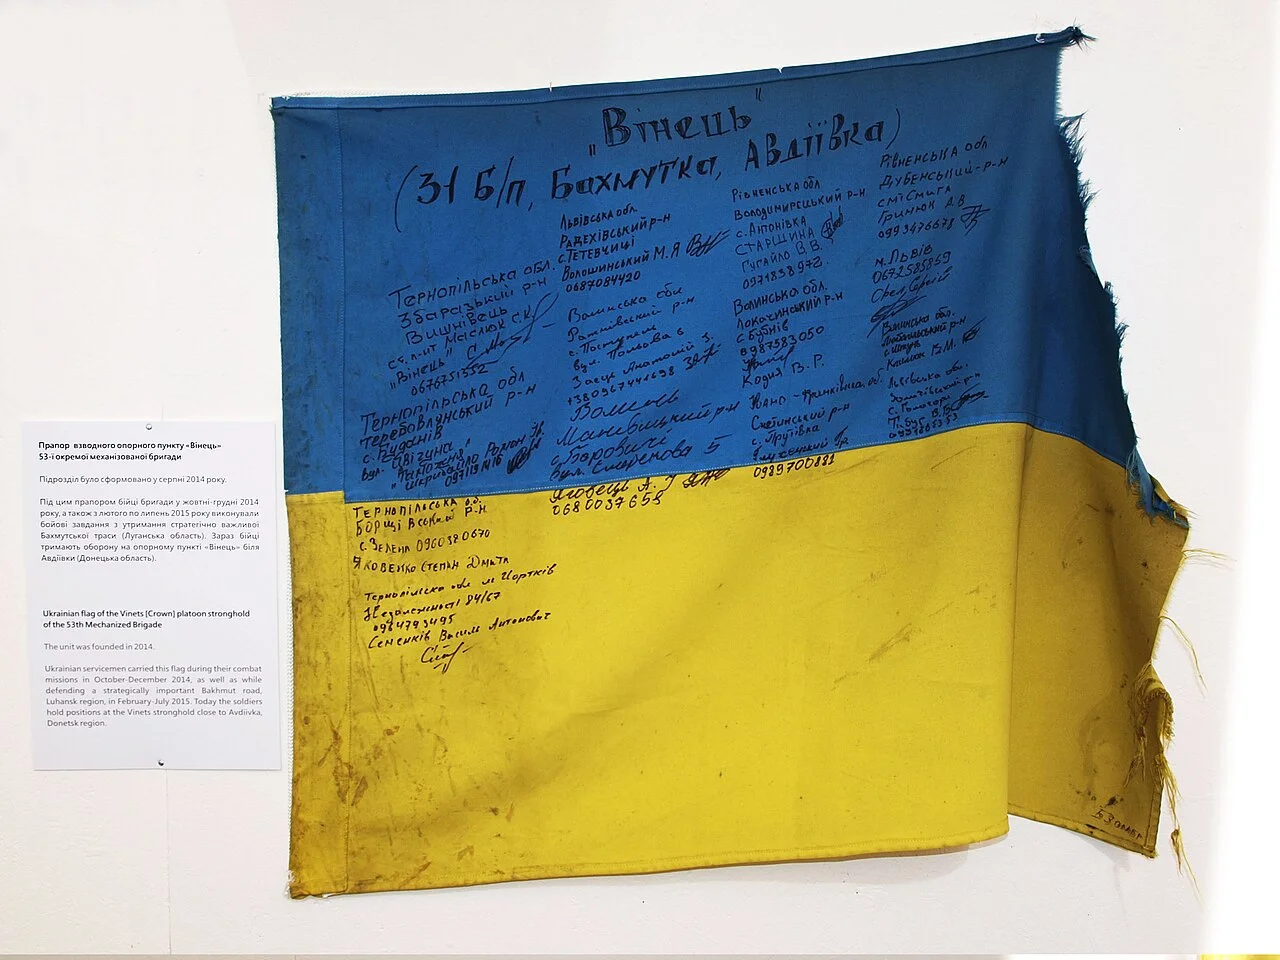 Прапор взводного опорного пункту «Вінець»
53-ї окремої механізованої бригади
Підрозділ було сформовано у серпні 2014 року.
Під цим прапором бійці бригади у жовтні-грудні 2014
року, а також з лютого по липень 2015 року виконували
бойові завдання з утримання стратегічно важливої
Бахмутської траси (Луганська область). Зараз бійці
тримають оборону на опорному пункті «Вінець» біля
Авдіївки (Донецька область).
Ukrainian flag of the Vinets (Crown) platoon stronghold
of the 53th Mechanized Brigade
The unit was founded in 2014.
Ukrainian servicemen carried this flag during their combat
missions in October-December 2014, as well as while
defending a strategically important Bakhmut road,
Luhansk region, in February-July 2015. Today the soldiers
hold positions at the Vinets stronghold close to Avdiivka,
Donetsk region.
„Вінець"
(31 б/п, Бахмутка, Авдіївка)
Тернопільська обл.
Збаразький р-н
Вишнівець
Маслюк С.К.
„Вінець"
0676751352
Тернопірська обл
теребовлянський р-н
с. Буданів
Тернопільська об.
Борщівський р-н
с. Зелена 0960380670
Яковенко Степан Дмит
Тернопільска обл м Чортків
Незалежності 84/67
0964793495
Семенків Василь Антонович
Львівська обл.
Радехівський р-н
с. Тетевчиці
Волошинський М.Я
0687084420
Волинська обл
Ратнівський р-н
с. Поступель
вул. Польова 6
Заєць Анатолій
+380967441698
Волинь
Маневицький р-н
с. Боровичі
Ягобець А. Г
0680037655
Рівненська обл
Володимирецький р-н
с. Антонівка
СТАРШИНА
Гугайло В.В.
0971838972
Волинська обл.
Локачинський р-н
с Бубнів
0987583050
Кодия В. Г.
Івано-Франківська об.
Снятинський р-н
с. Прутівка
0989700881
Рівненська обл
Дубенський р-н
смт Смига
Гринюк А.В
0993476678
м. Львів
0672585859
Орел Сергій
Волинська обл.
Любомльський р-н
Львівська обл.
Золочівський р-н